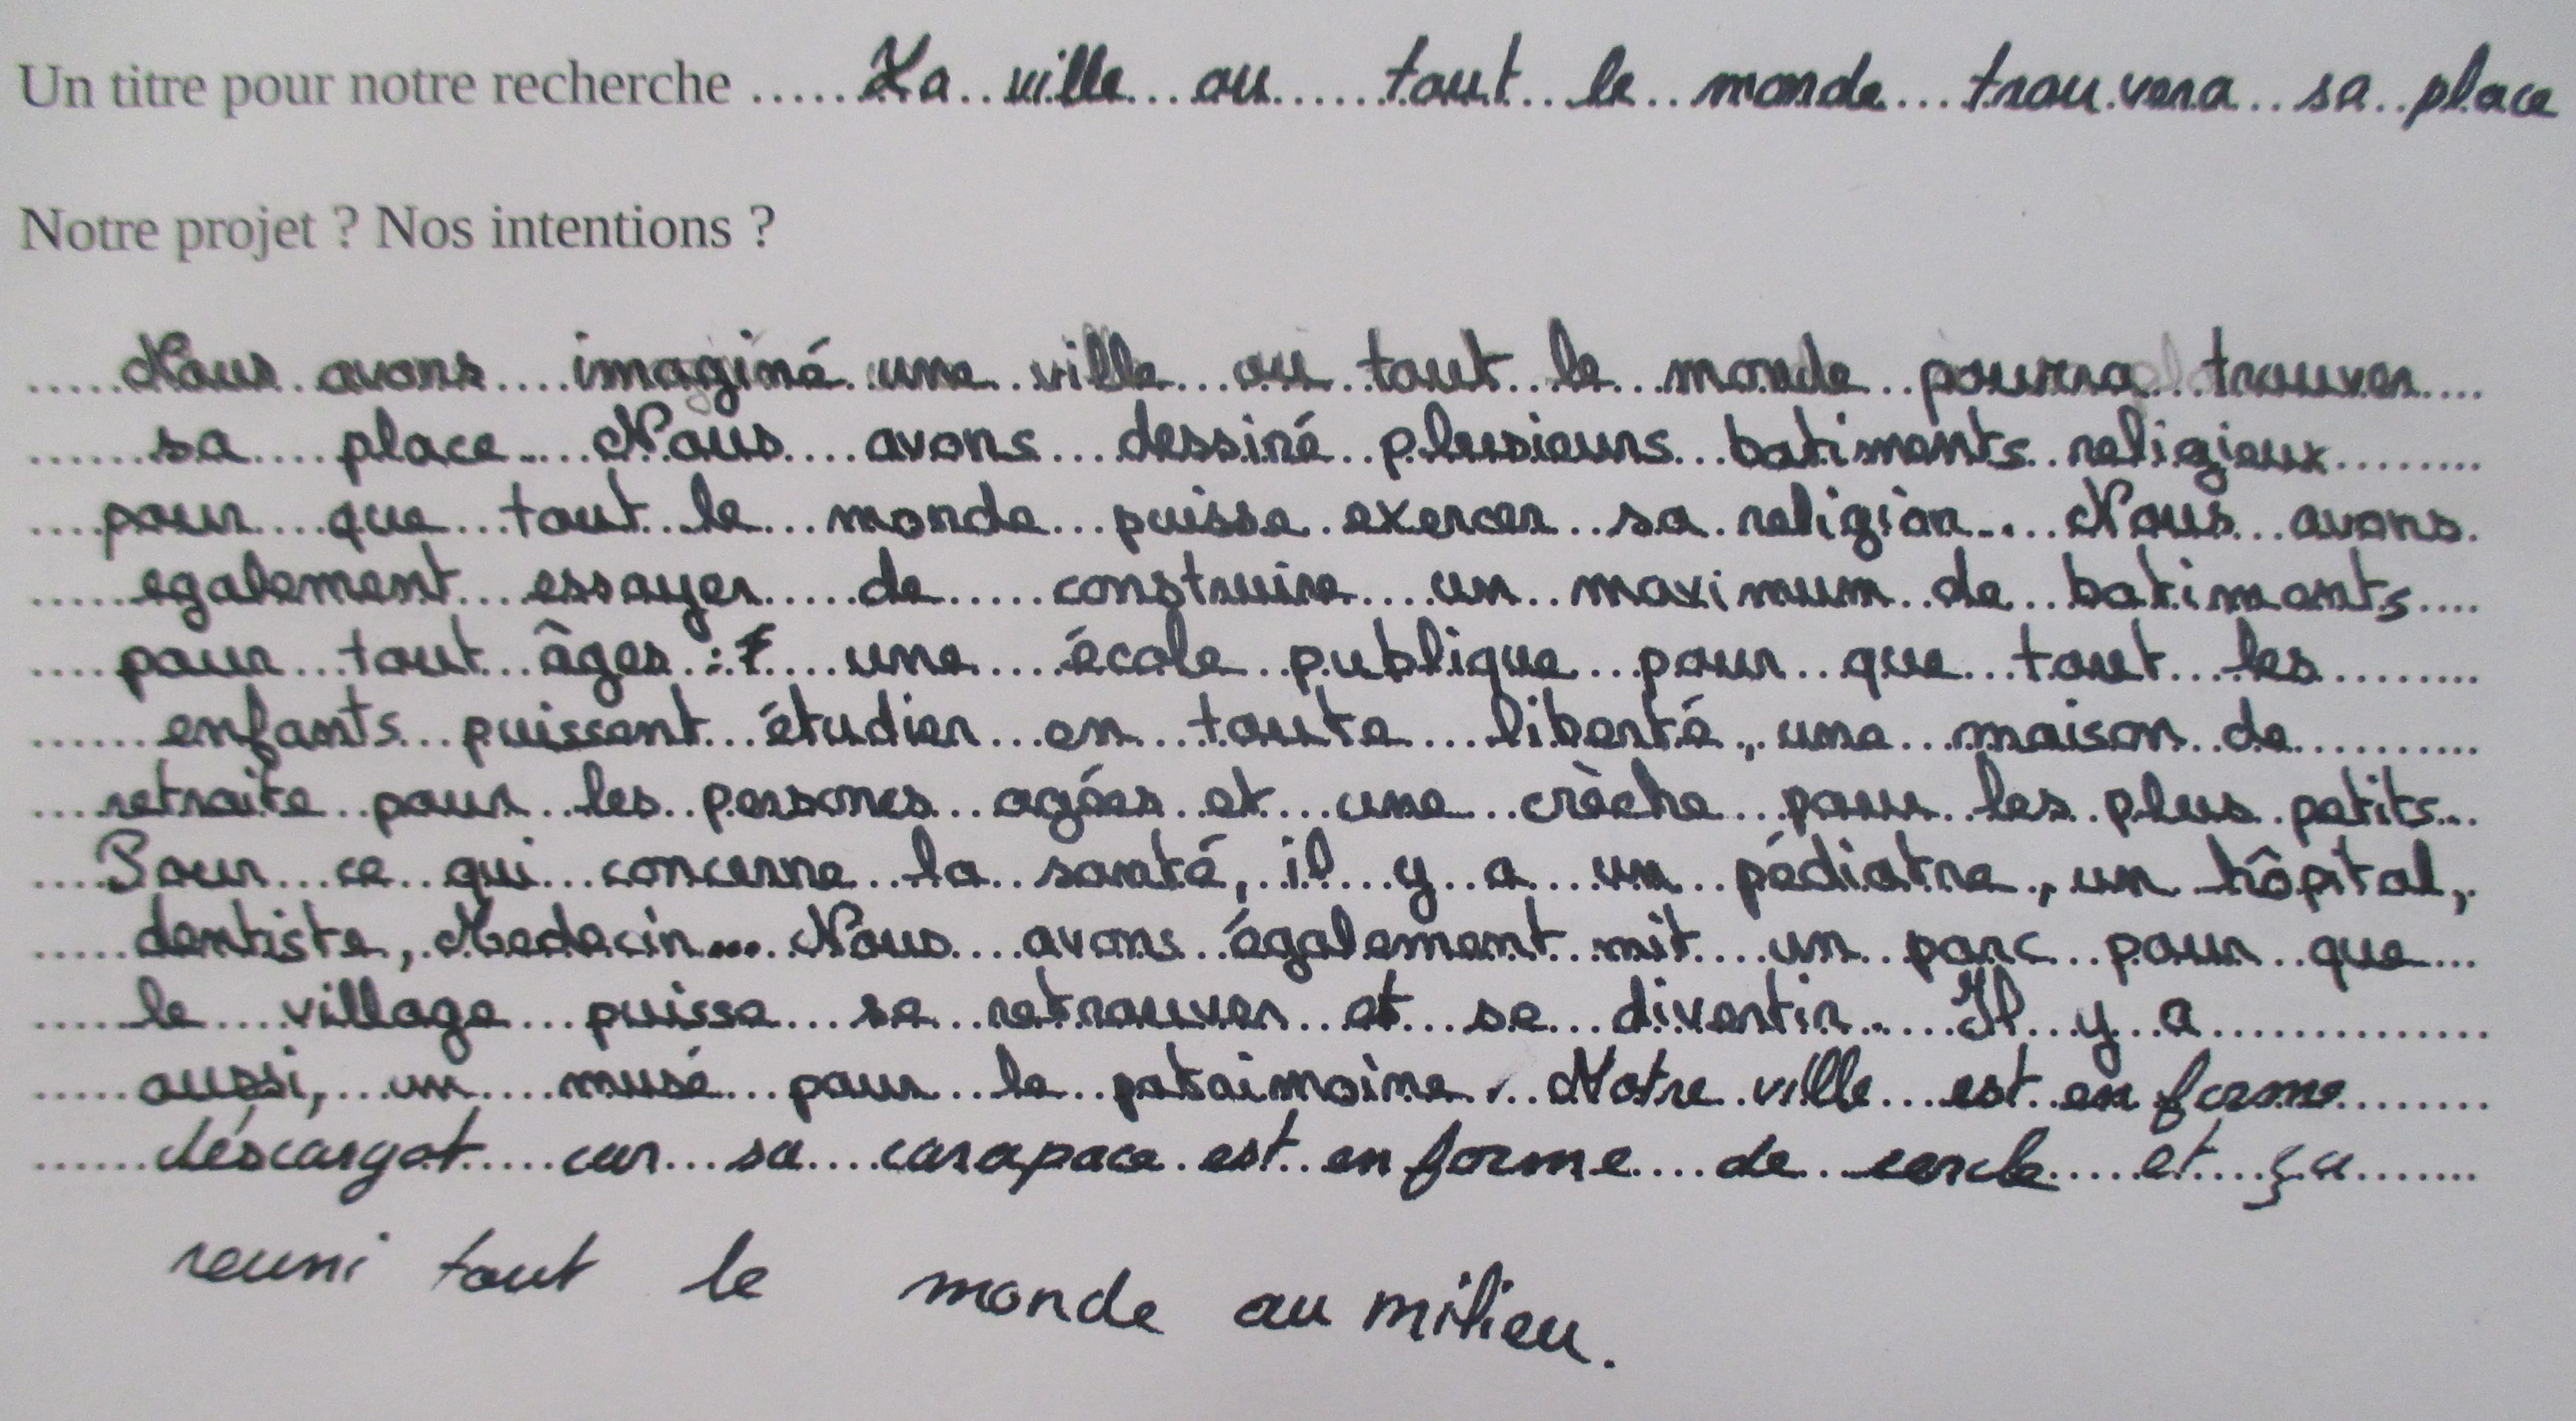 Un titre pour notre recherche ..... La ville ou tout le monde trouvera sa place
Notre projet ? Nos intentions ?
Nous avons imaginé une ville ou tout le monde pourra trouver
sa place. Nous avons dessiné plusieurs batiments religieux
pour que tout le monde puisse exercer sa religion. Nous avons
egalement essayer de construire un maximum de batiments
pour tout âges : une école publique pour que tout les
enfants puissent étudier en toute liberté, une maison de
retraite pour les persones agées et une crèche pour les plus petits.
Pour ce qui concerne la santé, il y a un pédiatre, un hôpital,
dentiste, Medecin... Nous avons également mit un parc pour que
le village puisse se retrouver et se divertir. Il y a
aussi, un musé pour le pataimoine. Notre ville est en forme
déscargot car sa carapace est en forme de cercle et ça
reuni tout le monde au milieu.